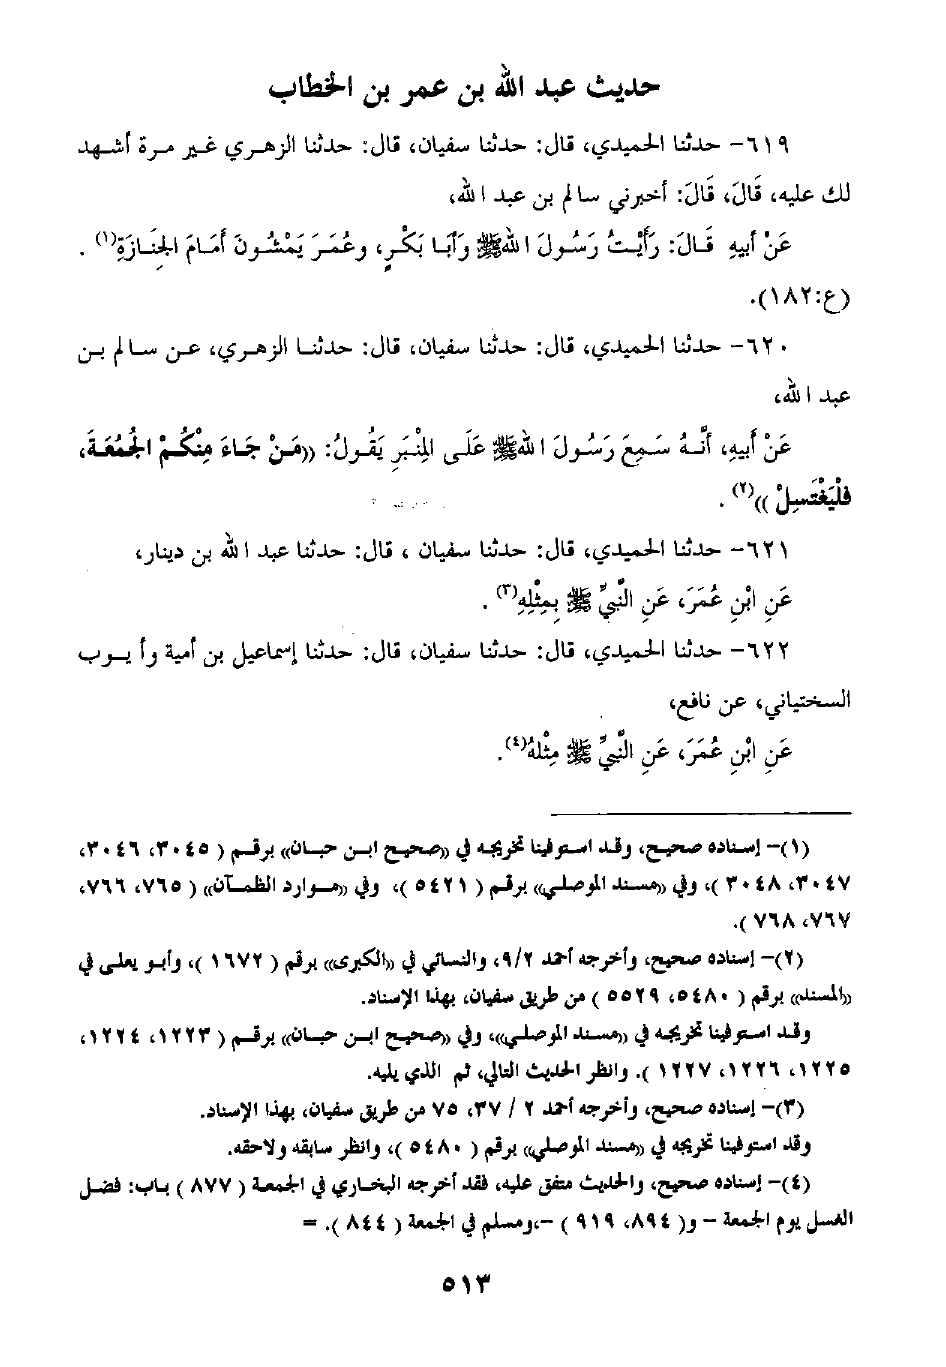 حديث عبد الله بن عمر بن الخطاب
٦١٩- حدثنا الحميدي، قال: حدثنا سفيان، قال: حدثنا الزهري غير مرة أشهد
لك عليه، قَالَ، قَالَ: أخبرني سالم بن عبد الله،
عَنْ أبيهِ قَالَ: رَأَيْتُ رَسُولَ اللهِ ﷺ وَأَبَا بَكْرٍ، وعُمَرَ يَمْشُونَ أَمَامَ الجَنَازَةِ(١) .
(ع:١٨٢).
٦٢٠- حدثنا الحميدي، قال: حدثنا سفيان، قال: حدثنا الزهري، عن سالم بن
عبد الله،
عَنْ أَبيهِ، أَنَّهُ سَمِعَ رَسُولَ اللهِ ﷺ عَلَى المِنْبَرِ يَقُولُ: ((مَنْ جَاءَ مِنْكُمْ الجُمُعَةَ،
فَلْيَغْتَسِلْ ))(٢) .
٦٢١- حدثنا الحميدي، قال: حدثنا سفيان ، قال: حدثنا عبد الله بن دينار،
عَنِ ابْنِ عُمَرَ، عَنِ النَّبِيِّ ﷺ بِمِثْلِهِ(٣) .
٦٢٢- حدثنا الحميدي، قال: حدثنا سفيان، قال: حدثنا إسماعيل بن أمية وأيوب
السختياني، عن نافع،
عَنِ ابْنِ عُمَرَ، عَنِ النَّبِيِّ ﷺ مِثْلهُ(٤).
(١)- إسناده صحيح، وقد استوفينا تخريجه في ((صحيح ابن حبان)) برقم ( ٣٠٤٥، ٣٠٤٦،
٣٠٤٧، ٣٠٤٨ )، وفي ((مسند الموصلي)) برقم ( ٥٤٢١ )، وفي ((موارد الظمآن)) ( ٧٦٥، ٧٦٦،
٧٦٧، ٧٦٨ ).
(٢)- إسناده صحيح، وأخرجه أحمد ٩/٢، والنسائي في ((الكبرى)) برقم ( ١٦٧٢ )، وأبو يعلى في
((المسند)) برقم ( ٥٤٨٠، ٥٥٢٩ ) من طريق سفيان، بهذا الإسناد.
وقد استوفينا تخريجه في ((مسند الموصلي))، وفي ((صحيح ابن حبان)) برقم ( ١٢٢٣، ١٢٢٤،
١٢٢٥، ١٢٢٦، ١٢٢٧ ). وانظر الحديث التالي، ثم الذي يليه.
(٣)- إسناده صحيح، وأخرجه أحمد ٢ / ٣٧، ٧٥ من طريق سفيان، بهذا الإسناد.
وقد استوفينا تخريجه في ((مسند الموصلي)) برقم ( ٥٤٨٠ )، وانظر سابقه ولاحقه.
(٤)- إسناده صحيح، والحديث متفق عليه، فقد أخرجه البخاري في الجمعة ( ٨٧٧ ) باب: فضل
الغسل يوم الجمعة – و( ٨٩٤، ٩١٩ ) –،ومسلم في الجمعة ( ٨٤٤ ). =
٥١٣